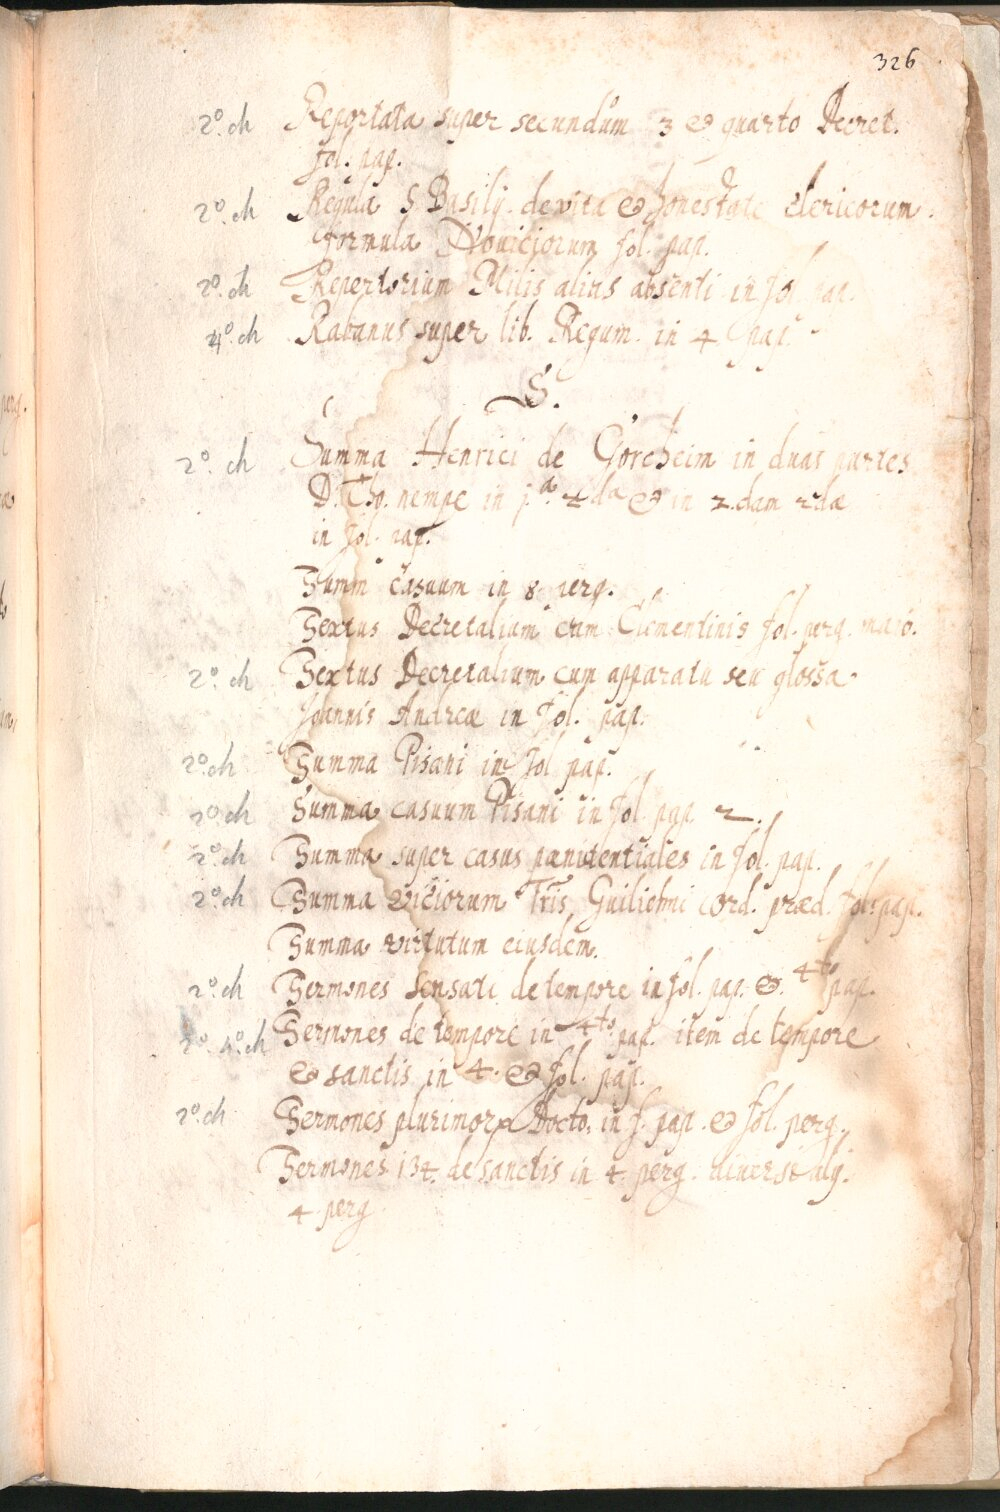 326
2º. ch Reportata super secundum 3 & quarto Decret.
fol. pap.
2º. ch Regula S Basilij. de vita & honestate clericorum.
formula Noviciorum fol. pap.
2º. ch Repertorium Milis alias absenti in fol pap.
4º. ch Rabanus super lib. Regum. in 4 pap.
S.
2º. ch Summa Henrici de Gorcheim in duas partes
D. Tho. nempe in j.ª 2dæ & in 2.dam 2dæ
in fol. pap.
Summ casuum in 8 perg.
Sextus Decretalium cum Clementinis fol. perg. maió.
2º. ch Sextus Decretalium cum apparatu seu glossa
Joannis Andreæ in fol. pap.
2º. ch Summa Pisani in fol pap.
2º ch Summa casuum Pisani in fol pap 2.
2º. ch Summa super casus pænitentiales in fol. pap.
2º. ch Summa viciorum Guilielmi Ord. præd. fol. pap.
Summa virtutum eiusdem.
2º. ch Sermones Sensati de tempore in fol. pap. & 4to pap.
2º. 4º. ch Sermones de tempore in 4to pap. item de tempore
& sanctis in 4. & fol. pap.
2º. ch Sermones plurimorꝝ Docto. in f. pap. & fol. perg.
Sermones 134. de sanctis in 4. perg. diuersi alij.
4. perg